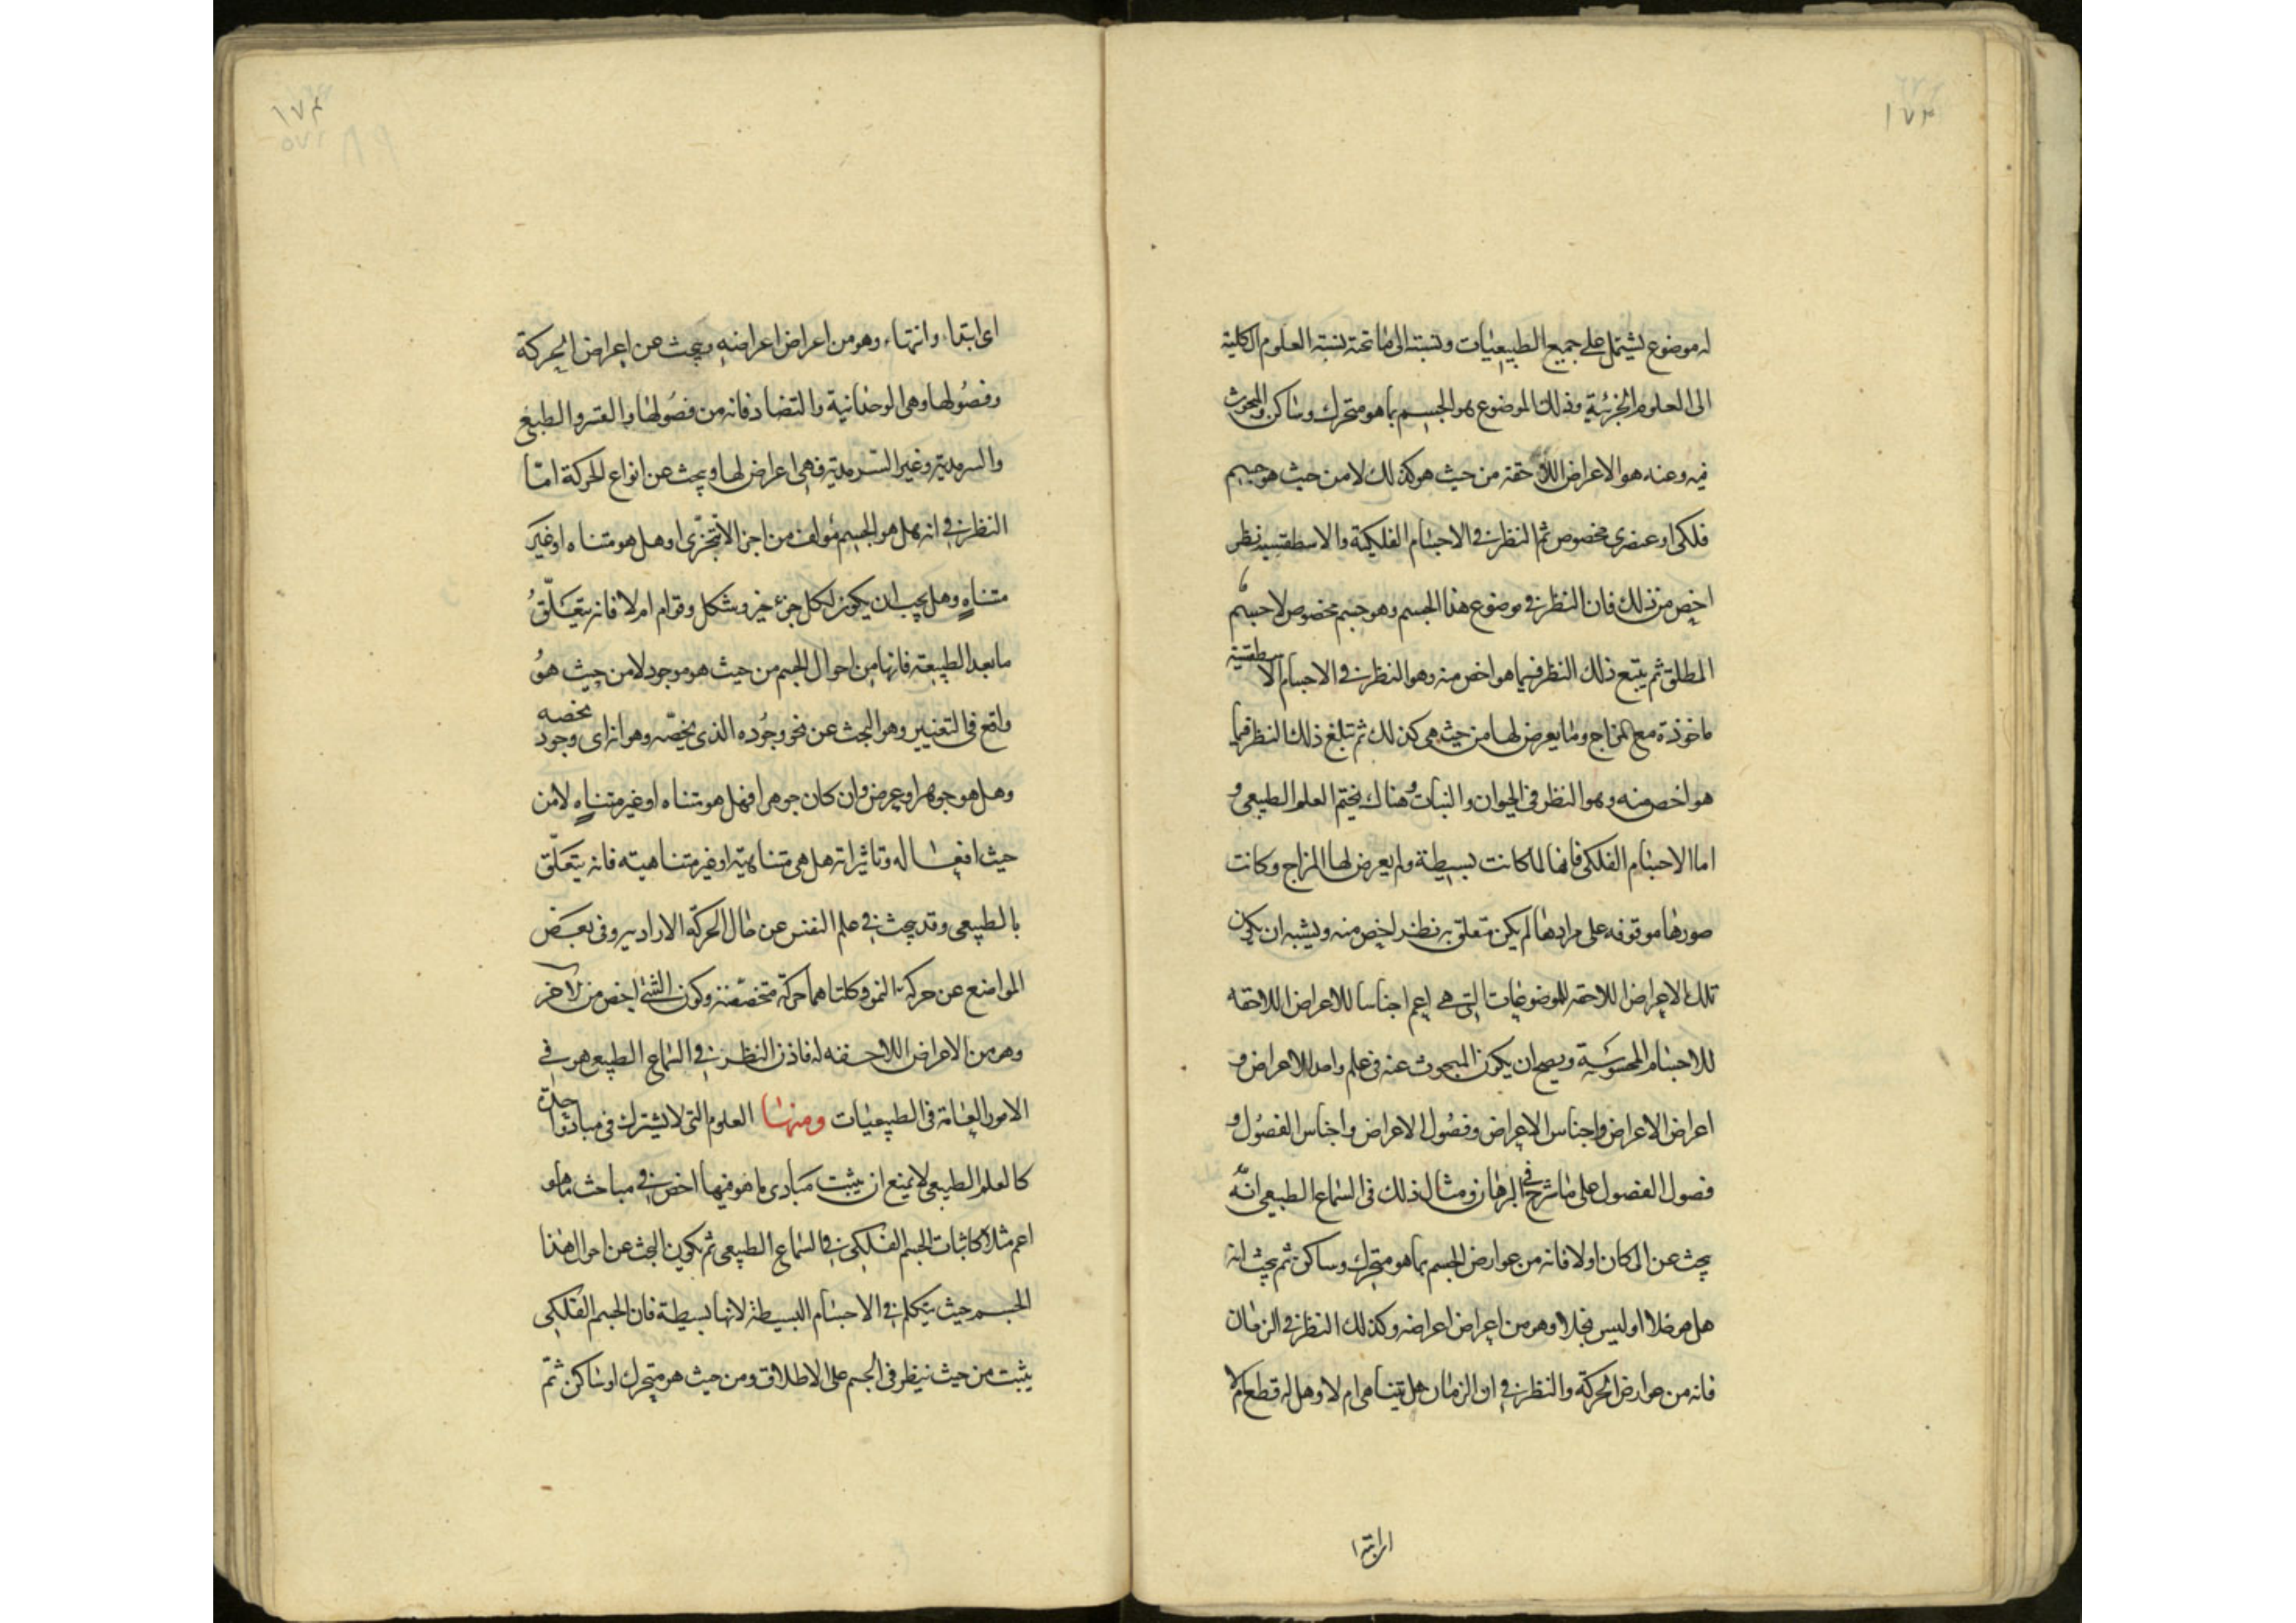 ١٧٣
له موضوع يشتمل على جميع الطبيعيات ونسبته الى ما تحته نسبة العلوم الكلية
الى العلوم الجزئية وذلك الموضوع هو الجسم بما هو متحرك وساكن والمبحوث
فيه وعنه هو الاعراض اللاحقة من حيث هو كذلك لا من حيث هو جسم
فلكى او عنصرى مخصوص ثم النظر فى الاجسام الفلكية والاسطقسية نظر
اخص من ذلك فان النظر فى موضوع هذا الجسم وهو جسم مخصوص لا جسم
المطلق ثم يتبع ذلك النظر فيما هو اخص منه وهو النظر فى الاجسام الاسطقسية
ماخوذة مع المزاج وما يعرض لها من حيث هى كذلك ثم تبلغ ذلك النظر فيما
هو اخص منه وهو النظر فى الحيوان والنبات وهناك يختم العلم الطبيعى و
اما الاجسام الفلكى فانها لما كانت بسيطة ولم يعرض لها المزاج وكانت
صورها موقوفه على مرادها لم يكن متعلق به نظر اخص منه ويشبه ان يكون
تلك الاعراض اللاحقه للموضوعات التى هى اعم اجناسا للاعراض اللاحقه
للاجسام المحسوسية ويصح ان يكون المبحوث عنه فى علم واحد الاعراض و
اعراض الاعراض واجناس الاعراض وفصول الاعراض واجناس الفصول و
فصول الفصول على ما شرح فى البرهان ومثال ذلك فى السماع الطبيعى انه
يبحث عن المكان اولا فانه من عوارض الجسم بما هو متحرك وساكن ثم يبحث انه
هل هو خلا او ليس بخلا وهو من اعراض اعراضه وكذلك النظر فى الزمان
فانه من عوارض الحركة والنظر فى ان الزمان هل يتناهى ام لا وهل له قطع ام لا
١٧۴
٨٩
اى ابتداء وانتهاء وهو من اعراض اعراضه ويبحث عن اعراض الحركة
وفصولها وهى الوحدانية والتضاد فانه من فصولها والقسر والطبع
والسرمدية وغير السرمدية فهى اعراض لها ويبحث عن انواع الحركة اما
النظر فى انه هل هو الجسم مؤلف من اجزا لا تتجزى او هل هو متناه او غير
متناهٍ وهل يجب ان يكون لكل جزء حيز وشكل وقوام ام لا فانه يتعلق
ما بعد الطبيعة فانها من احوال الجسم من حيث هو موجود لا من حيث هو
واقع فى التغيير وهو البحث عن نحو وجوده الذى يخصه وهو انه اى وجود يخصه
وهل هو جوهر او عرض وان كان جوهرا فهل هو متناه او غير متناهٍ لا من
حيث افعاله وتاثيراته هل هى متناهية او غير متناهيته فانه يتعلق
بالطبيعى وقد يبحث فى علم النفس عن حال الحركة الارادية وفى بعض
المواضع عن حركة النمو وكلتاهما حركة متخصصة وكون الشئ اخص من الاخر
وهو من الاعراض اللاحقه له فاذن النظر فى السماع الطبيعى هو فى
الامور العامة فى الطبيعيات ومنها العلوم التى لا يشترك فى مبادئ واحدة
كالعلم الطبيعى لا يمنع ان يثبت مبادى ما هو فيها اخص فى مباحث ما هو
اعم مثلا كاثبات الجسم الفلكى فى السماع الطبيعى ثم يكون البحث عن احوال هذا
الجسم حيث يتكلم فى الاجسام البسيطة لانها بسيطة فان الجسم الفلكى
يثبت من حيث ينظر فى الجسم على الاطلاق ومن حيث هو متحرك او ساكن ثم